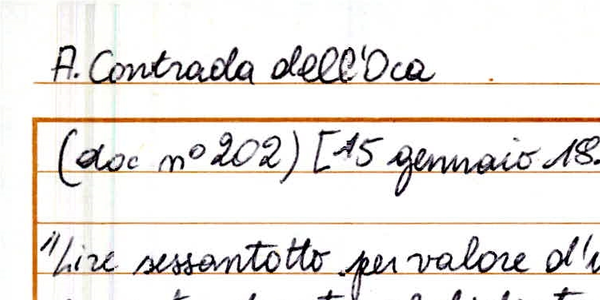 A. Contrada dell'Oca
(doc nº 202) [15 gennaio 18
"Lire sessantotto per valore d'u